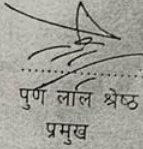 पुर्ण लाल श्रेष्ठ
प्रमुख